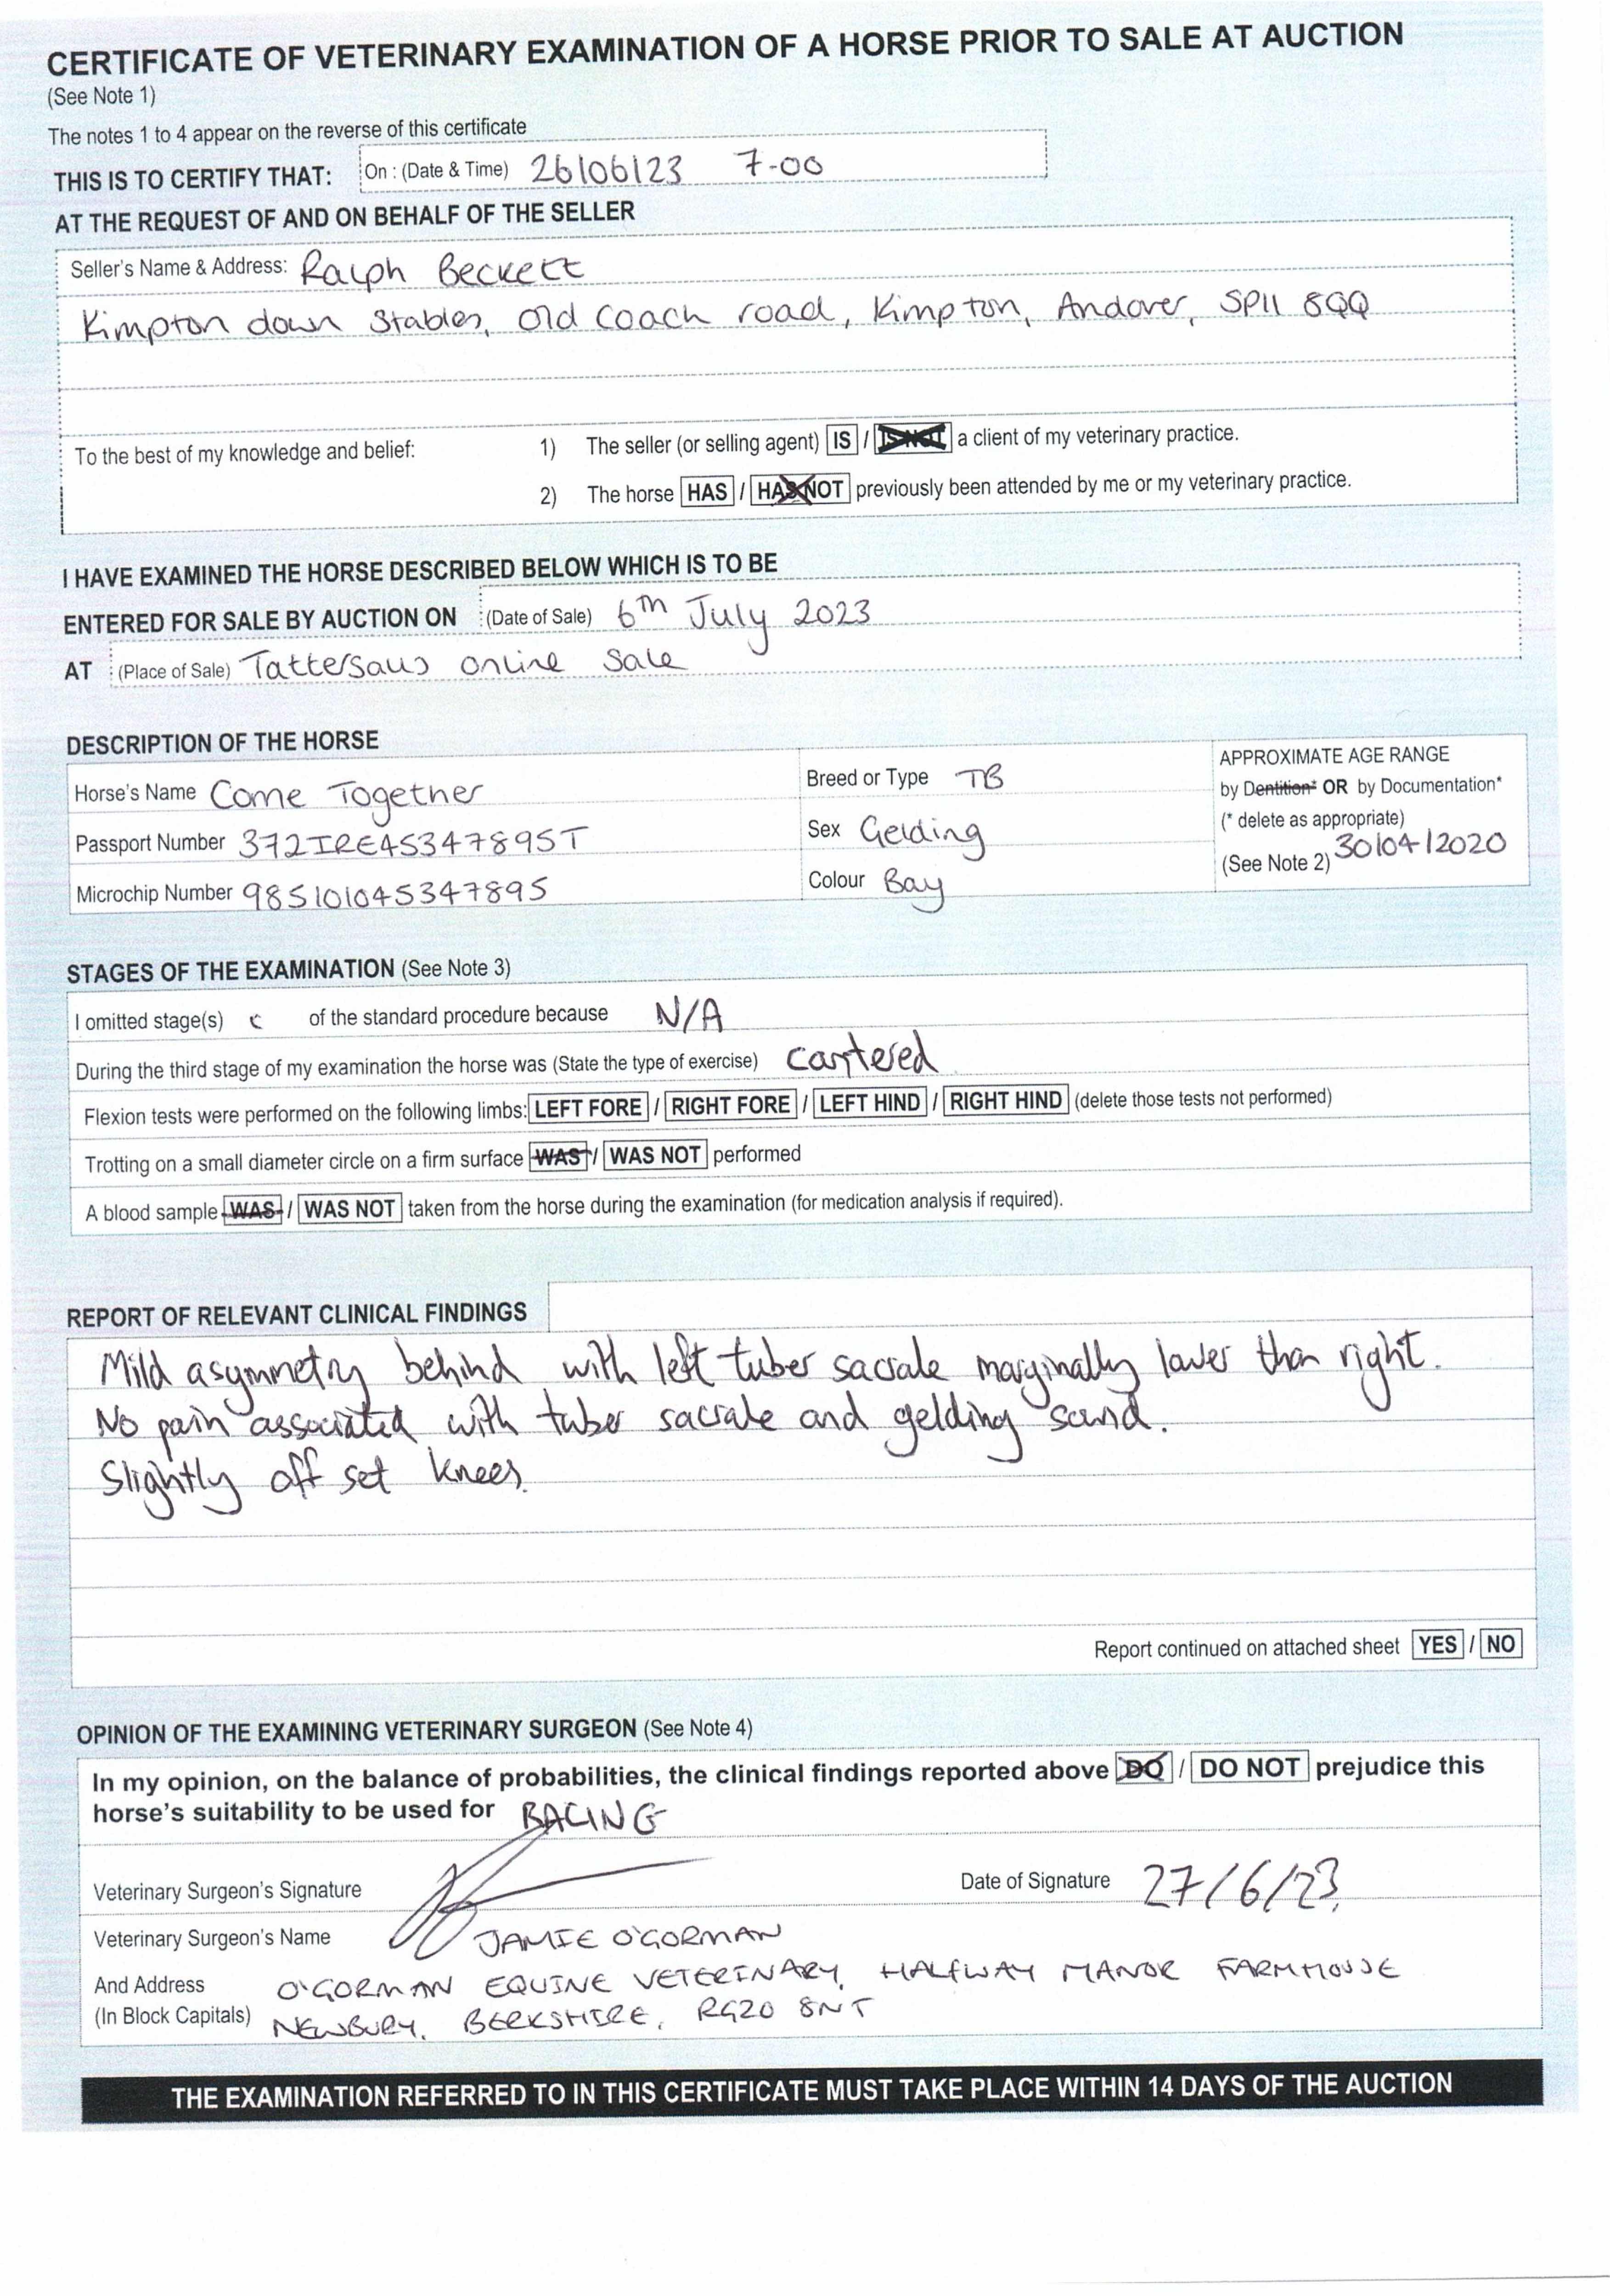 CERTIFICATE OF VETERINARY EXAMINATION OF A HORSE PRIOR TO SALE AT AUCTION
(See Note 1)
The notes 1 to 4 appear on the reverse of this certificate
THIS IS TO CERTIFY THAT: On : (Date & Time) 26/06/23 7-00
AT THE REQUEST OF AND ON BEHALF OF THE SELLER
Seller's Name & Address: Ralph Beckett
Kimpton down Stables, old coach road, Kimpton, Andover, SP11 8QQ
To the best of my knowledge and belief: 1) The seller (or selling agent) IS / IS NOT a client of my veterinary practice.
2) The horse HAS / HAS NOT previously been attended by me or my veterinary practice.
I HAVE EXAMINED THE HORSE DESCRIBED BELOW WHICH IS TO BE
ENTERED FOR SALE BY AUCTION ON (Date of Sale) 6th July 2023
AT (Place of Sale) Tattersalls online Sale
DESCRIPTION OF THE HORSE
Horse's Name Come Together
Passport Number 372IRE45347895T
Microchip Number 985101045347895
Breed or Type TB
Sex Gelding
Colour Bay
APPROXIMATE AGE RANGE
by Dentition* OR by Documentation*
(* delete as appropriate)
(See Note 2) 30/04/2020
STAGES OF THE EXAMINATION (See Note 3)
I omitted stage(s) of the standard procedure because N/A
During the third stage of my examination the horse was (State the type of exercise) cantered
Flexion tests were performed on the following limbs: LEFT FORE / RIGHT FORE / LEFT HIND / RIGHT HIND (delete those tests not performed)
Trotting on a small diameter circle on a firm surface WAS / WAS NOT performed
A blood sample WAS / WAS NOT taken from the horse during the examination (for medication analysis if required).
REPORT OF RELEVANT CLINICAL FINDINGS
Mild asymmetry behind with left tuber sacrale marginally lower than right.
No pain associated with tuber sacrale and gelding sound.
Slightly off set knees.
Report continued on attached sheet YES / NO
OPINION OF THE EXAMINING VETERINARY SURGEON (See Note 4)
In my opinion, on the balance of probabilities, the clinical findings reported above DO / DO NOT prejudice this
horse's suitability to be used for RACING
Veterinary Surgeon's Signature
Date of Signature 27/6/23
Veterinary Surgeon's Name JAMIE O'GORMAN
And Address O'GORMAN EQUINE VETERINARY, HALFWAY MANOR FARMHOUSE
(In Block Capitals) NEWBURY, BERKSHIRE, RG20 8NT
THE EXAMINATION REFERRED TO IN THIS CERTIFICATE MUST TAKE PLACE WITHIN 14 DAYS OF THE AUCTION